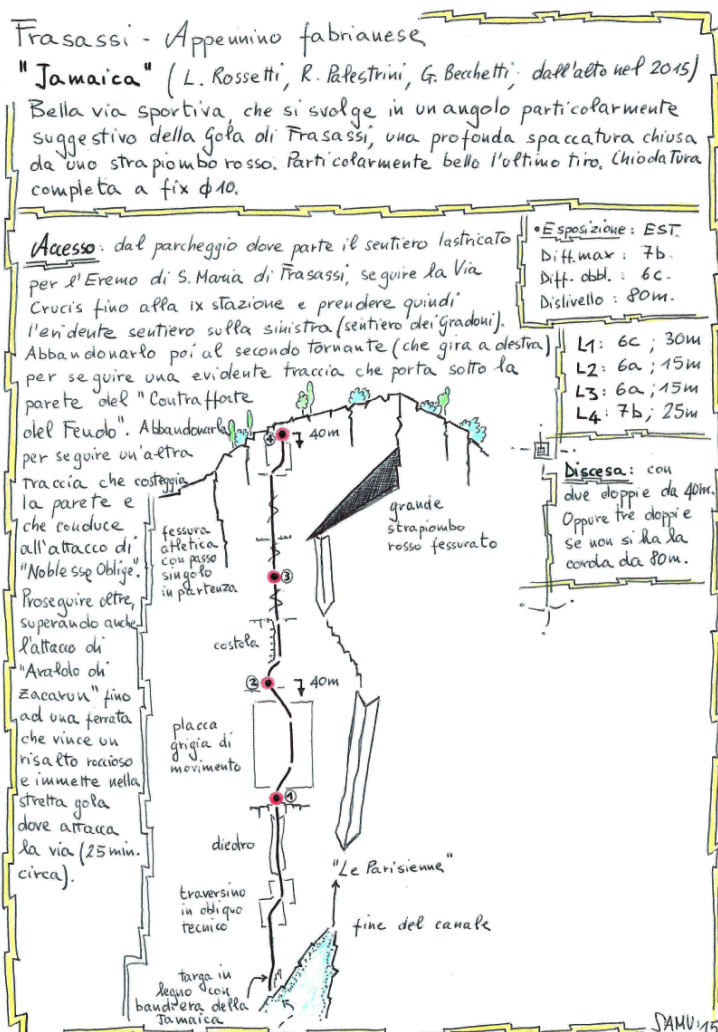 Frasassi - Appennino fabrianese
"Jamaica" (L. Rossetti, R. Palestrini, G. Becchetti, dall'alto nel 2015)
Bella via sportiva, che si svolge in un angolo particolarmente
suggestivo della Gola di Frasassi, una profonda spaccatura chiusa
da uno strapiombo rosso. Particolarmente bello l'ultimo tiro. Chiodatura
completa a fix φ10.
Accesso: dal parcheggio dove parte il sentiero lastricato
per l'Eremo di S. Maria di Frasassi, seguire la Via
Crucis fino alla IX stazione e prendere quindi
l'evidente sentiero sulla sinistra (sentiero dei Gradoni).
Abbandonarlo poi al secondo tornante (che gira a destra)
per seguire una evidente traccia che porta sotto la
parete del "Contrafforte
del Feudo". Abbandonarla
per seguire un'altra
traccia che costeggia
la parete e
che conduce
all'attacco di
"Noblesse Oblige".
Proseguire oltre,
superando anche
l'attacco di
"Araldo di
Zacarun" fino
ad una ferrata
che vince un
risalto roccioso
e immette nella
stretta gola
dove attacca
la via (25 min.
circa).
• Esposizione: EST.
Diff. max : 7b.
Diff. obbl. : 6c.
Dislivello : 80m.
L1: 6c ; 30m
L2: 6a ; 15m
L3: 6a ; 15m
L4: 7b ; 25m
Discesa: con
due doppie da 40m.
Oppure tre doppie
se non si ha la
corda da 80m.
4
40m
grande
strapiombo
rosso fessurato
fessura
atletica
con passo
singolo
in partenza
3
costola
2
40m
placca
grigia di
movimento
1
diedro
"Le Parisienne"
traversino
in obliquo
tecnico
fine del canale
targa in
legno con
bandiera della
Jamaica